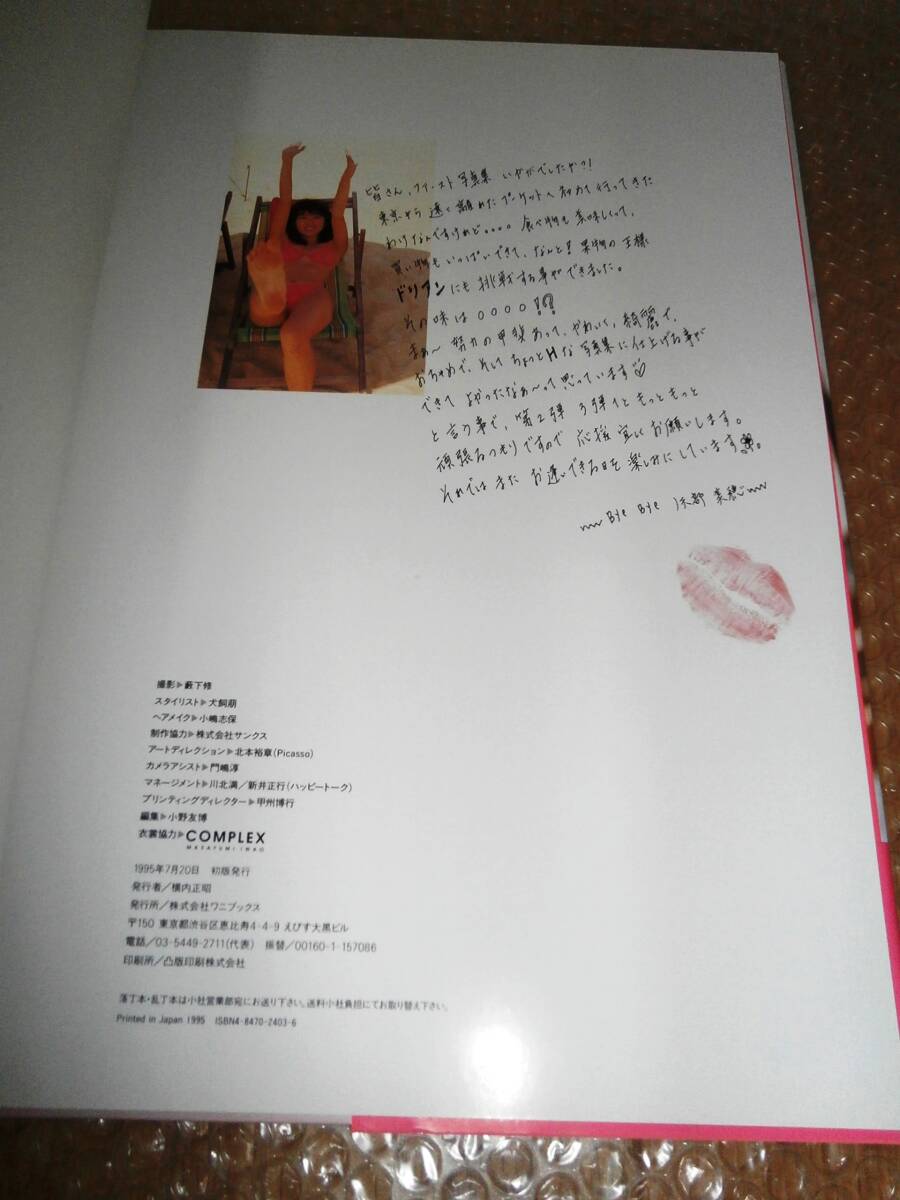 皆さん、ファースト写真集 いかがでしたか?!
東京から遠く離れたプーケットへ初めて行ってきた
わけなんですけれど。。。。食べ物も美味しくって、
買い物もいっぱいできて、なんと!果物の王様
ドリアンにも挑戦する事ができました。
その味は。。。。!?
まぁ〜努力の甲斐あって、かわいく、綺麗で、
おちゃめで、そしてちょっとHな写真集に仕上げる事が
できてよかったなぁ〜って思っています♡
と言う事で、第2弾 3弾イともっともっと
頑張るつもりですので応援宜しくお願いします。
それではまたお逢いできる日を楽しみにしています。
Bye Bye 美穂
撮影▶藪下修
スタイリスト▶犬飼朋
ヘアメイク▶小嶋志保
制作協力▶株式会社サンクス
アートディレクション▶北本裕章(Picasso)
カメラアシスト▶門嶋淳
マネージメント▶川北満/新井正行(ハッピートーク)
プリンティングディレクター▶甲州博行
編集▶小野友博
衣裳協力▶COMPLEX
MASAFUMI IWAO
1995年7月20日 初版発行
発行者/横内正昭
発行所/株式会社ワニブックス
〒150 東京都渋谷区恵比寿4-4-9 えびす大黒ビル
電話/03-5449-2711(代表) 振替/00160-1-157086
印刷所/凸版印刷株式会社
落丁本・乱丁本は小社営業部宛にお送り下さい。送料小社負担にてお取り替え下さい。
Printed in Japan 1995 ISBN4-8470-2403-6